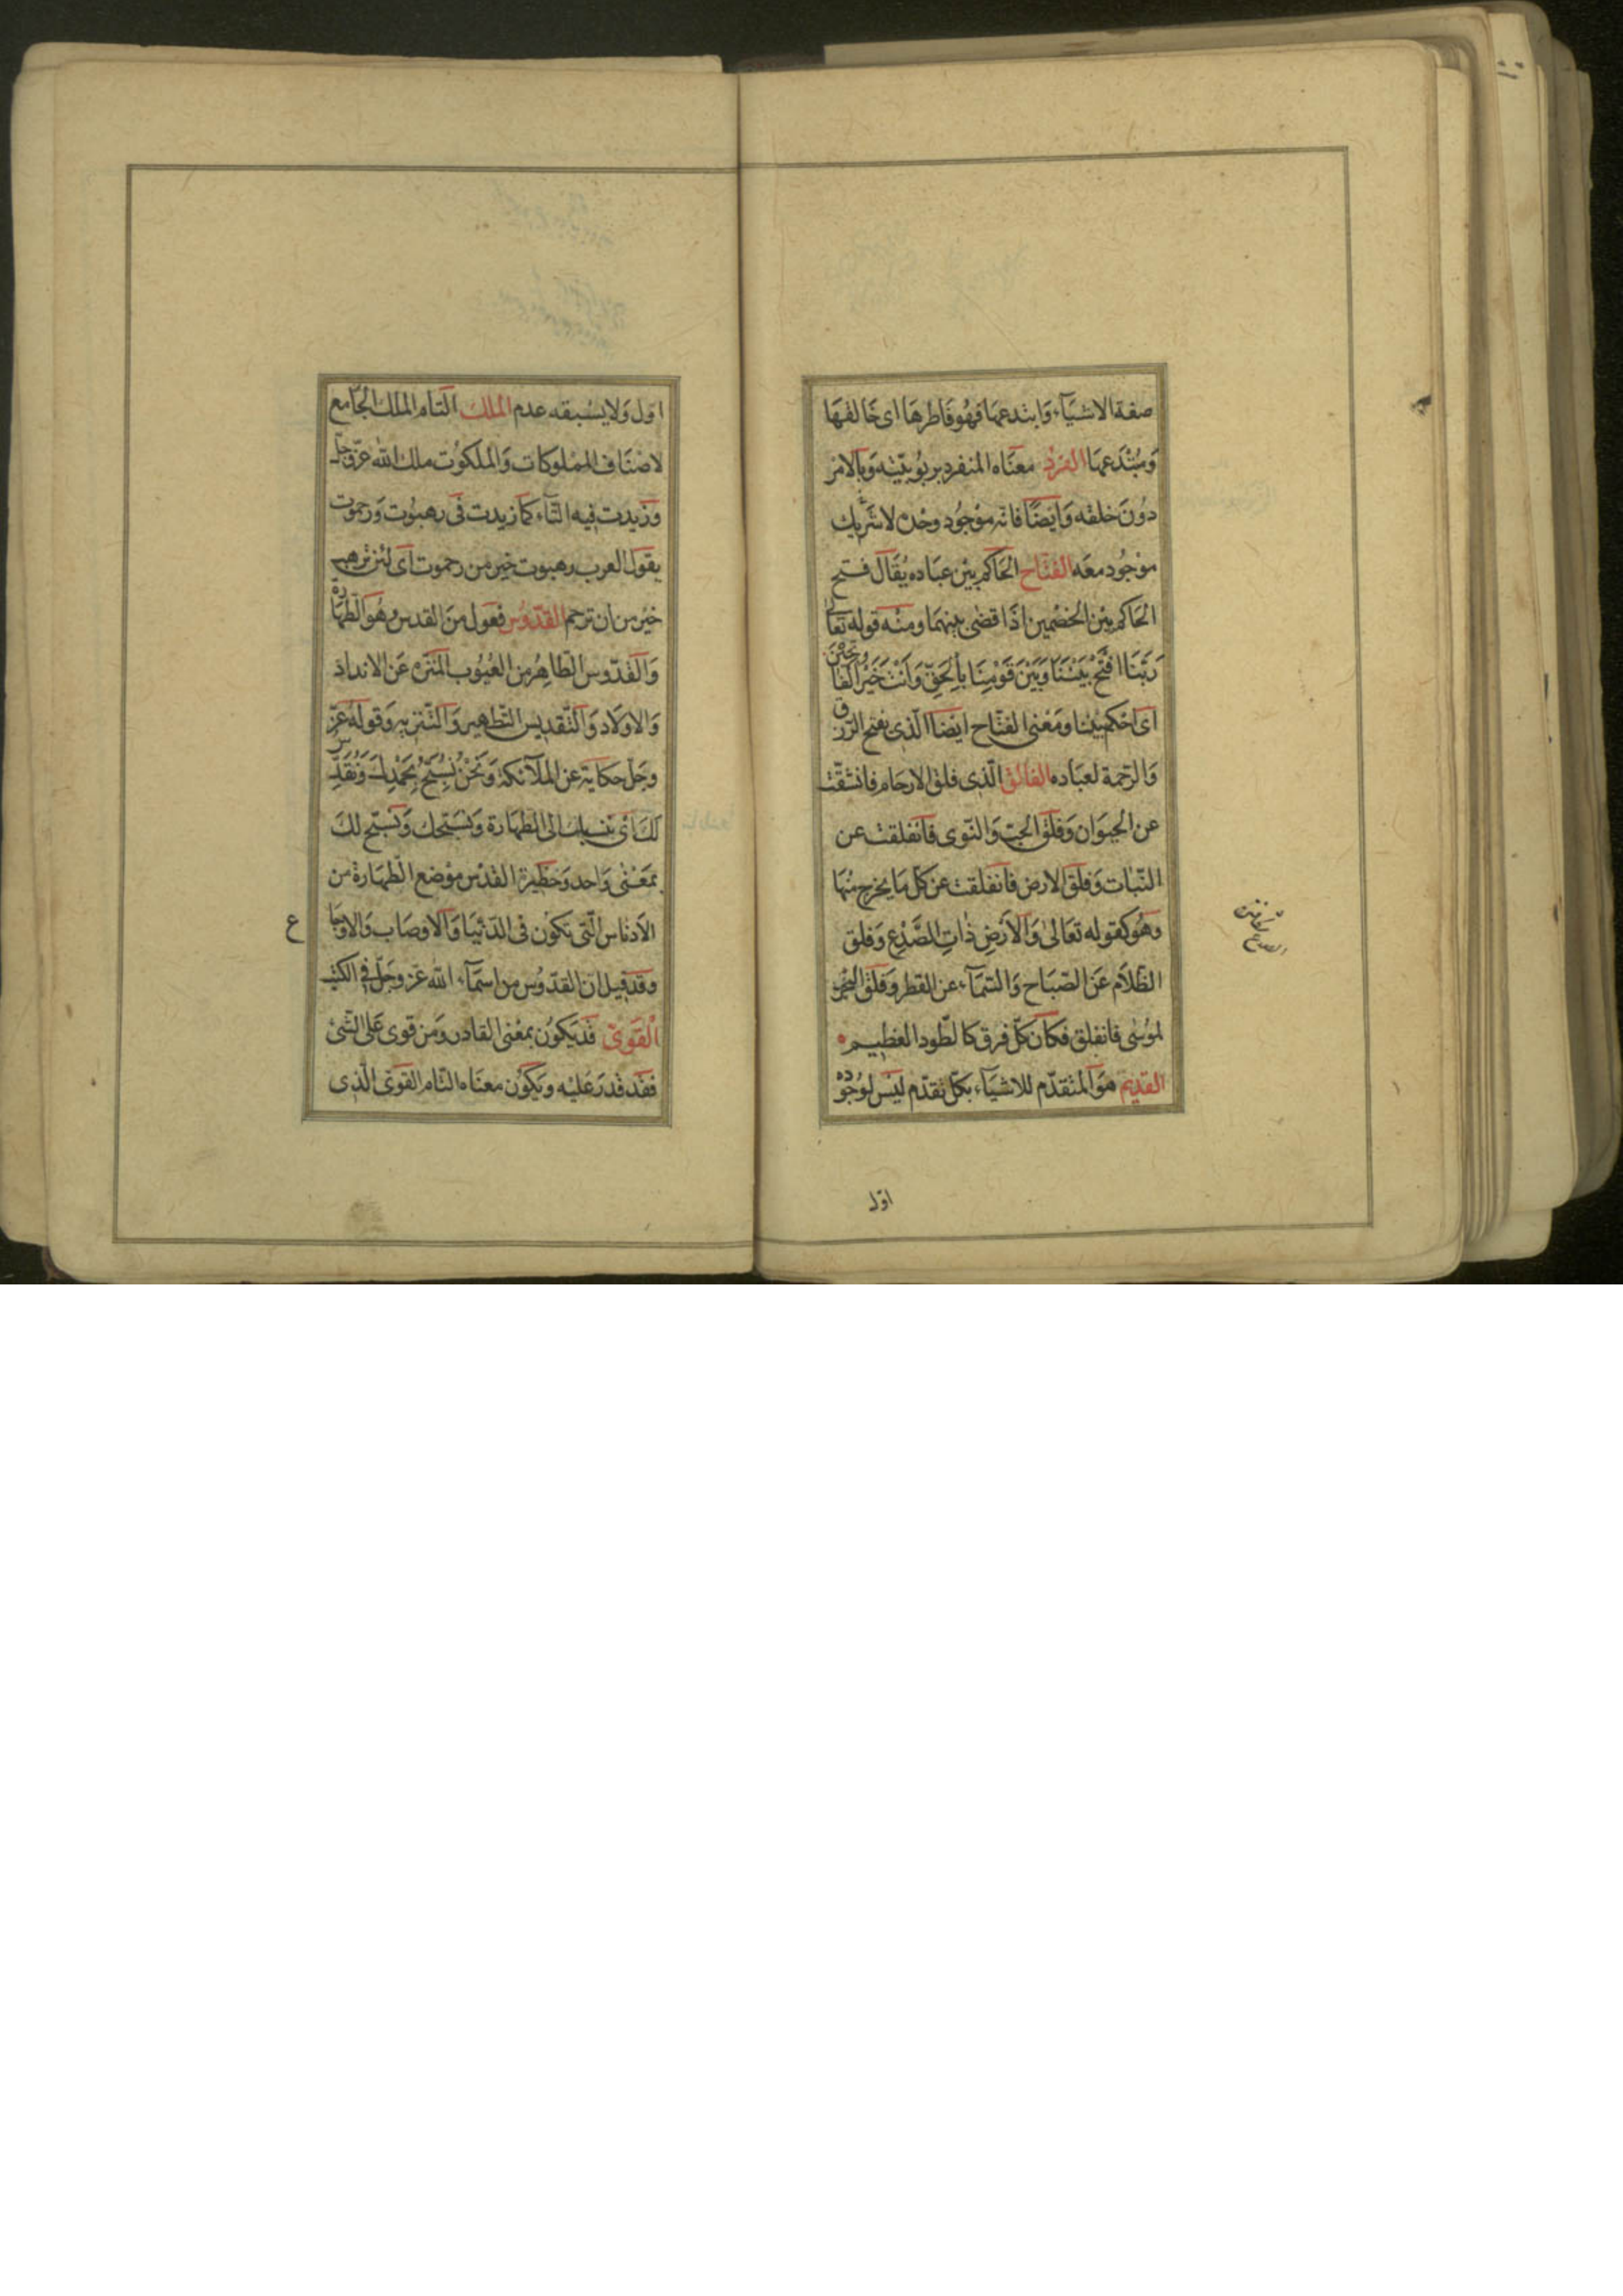 صفة الاشيآء وَابتدعها فهُو فَاطرهَا اى خَالقهَا
وَمُبْتَدعهَا الفَردُ معنَاه المنفرد بربُوبيّته وَبالامر
دُونَ خلقه وَايَضًا فانه موْجُود وحْده لا شَريك
موْجُود معَه الفتّاح الحَاكم بيْن عبَاده يُقَال فتح
الحَاكم بيْن الخصْمين اذَا قضٰى بينهمَا ومنْه قوله تعَالٰى
رَبَّنَا افْتَحْ بَيْنَنَا وَبَيْنَ قَوْمِنَا بِالْحَقِّ وَاَنْتَ خَيْرُ الْفَاتِحِيْنَ
اى احْكم بيْننا ومَعْنى الفتّاح ايْضَا الّذى يفتح الرّزق
وَالرّحمة لعبَاده الفالق الّذى فلق الارحَام فانشقّت
عن الحيوَان وَفلق الحبّ وَالنّوى فانفلقت عن
النّبات وَفلق الارض فانفلقت عن كلّ مَا يخرج منْهَا
وهُو كقوله تعَالىٰ وَالاَرْضِ ذَاتِ الصَّدْعِ وَفلق
الظّلَام عَن الصّبَاح وَالسّمَآء عن القطر وَفلق البحْر
لموُسٰى فانفلق فكَان كلّ فرق كالطّود العَظيم
القديم هوَ المتقدّم للاشيَآء بكلّ تقدّم ليْس لوجُوده
الصدع
اوّل
اوّل وَلا يسْبقه عدم الْملك التَام الملك الجَامع
لاصْنَاف المْملوكات وَالملكوُت ملك اللّٰه عزّ وجلّ
وَزيدت فيه التّآء كمَا زيدت فى رهبُوت وَرحموت
يقول العرب رهبوت خير من رحموت اى لئن ترهب
خيْر من ان ترحم القدّوُس فعول منَ القدس وهُو الطّهَارة
وَالقدّوس الطّاهرُ من العيُوب المنَزه عَن الانداد
وَالاولَاد وَالتّقديس التّطهير وَالتّنزيه وَقوله عزّ
وجَلّ حكَاية عن الملآئكة وَنَحْنُ نُسَبِّحُ بِحَمْدِكَ وَنُقَدِّسُ
لَكَ اىْ ننسبك الى الطّهَارة وَنسَبّحك وَنسَبّح لكَ
بمَعْنٰى وَاحد وَحظيرة القدْس موْضع الطّهَارة من
الاَدنَاس الّتى تكوُن فى الدّنْيَا وَالاوصَاب وَالاوجَاع
وَقدقيل ان القدّوُس من اسمَآء اللّٰه عزّ وجَلّ فى الكتب
اَلْقَوىّ قدْ يكَوُن بمعْنى القادر وَمن قوى عَلى الشّئ
فقَد قدَر عَليْه ويَكوُن معنَاه التّام القوىّ الّذى